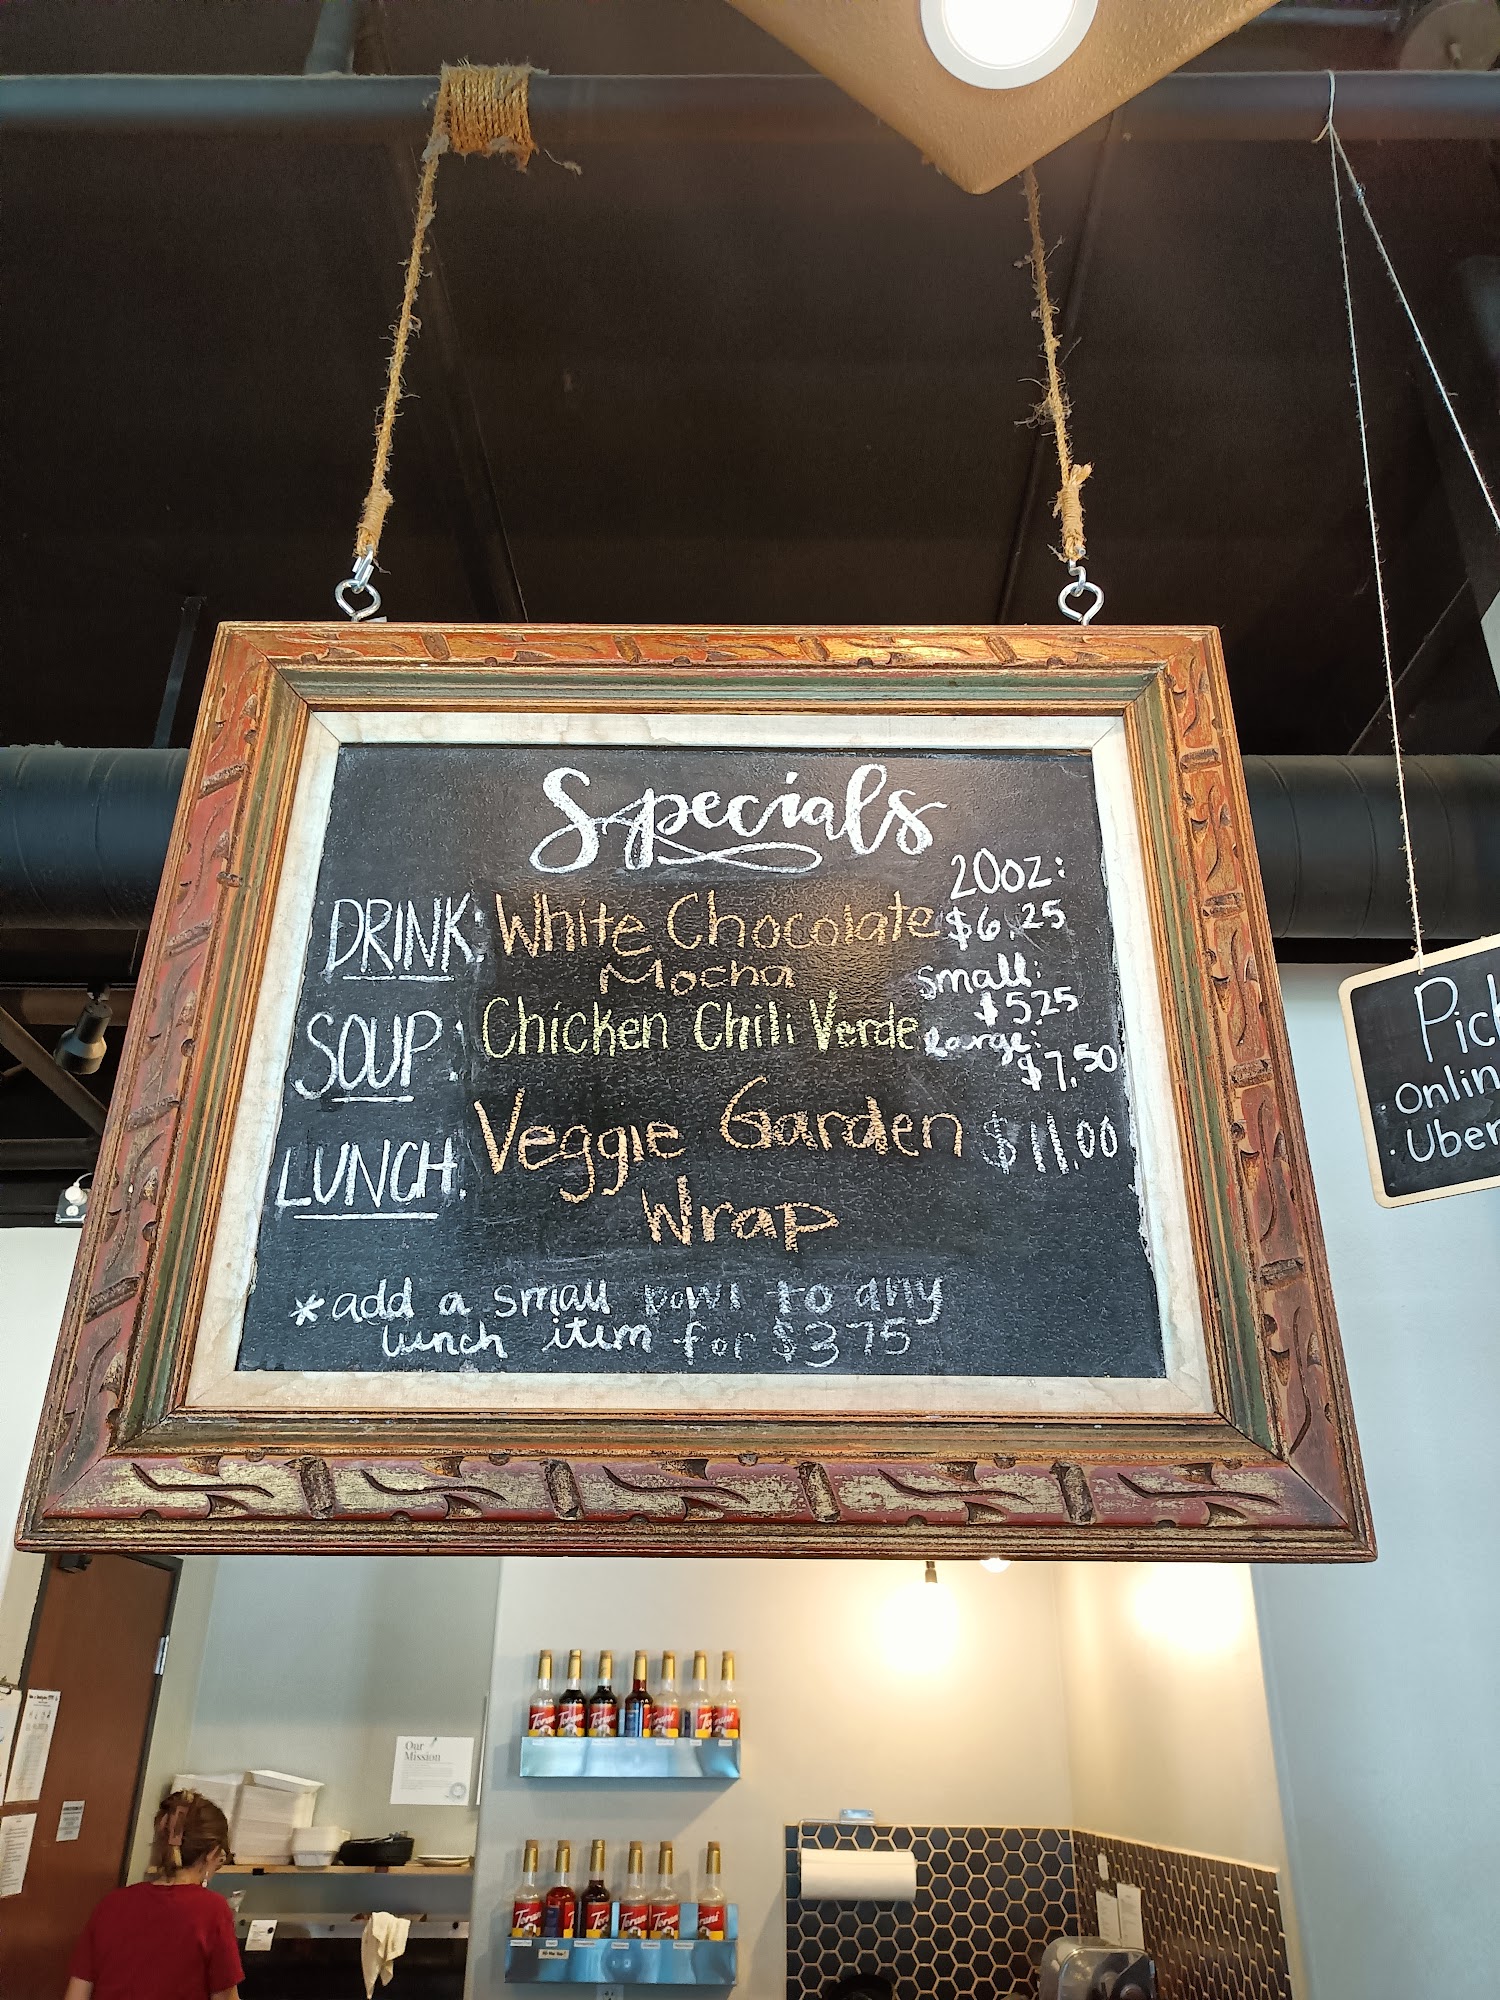 Specials
20oz:
DRINK: White Chocolate $6.25
Mocha
small:
$5.25
SOUP: Chicken Chili Verde
Large:
$7.50
LUNCH: Veggie Garden $11.00
Wrap
*add a small bowl to any
lunch item for $3.75
Onlin
Uber
Our
Mission
Torani
Torani
Torani
Torani
Torani
Torani